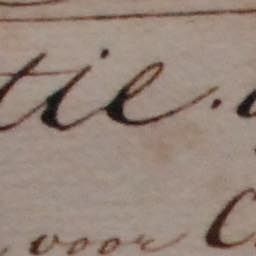 tie.
voor